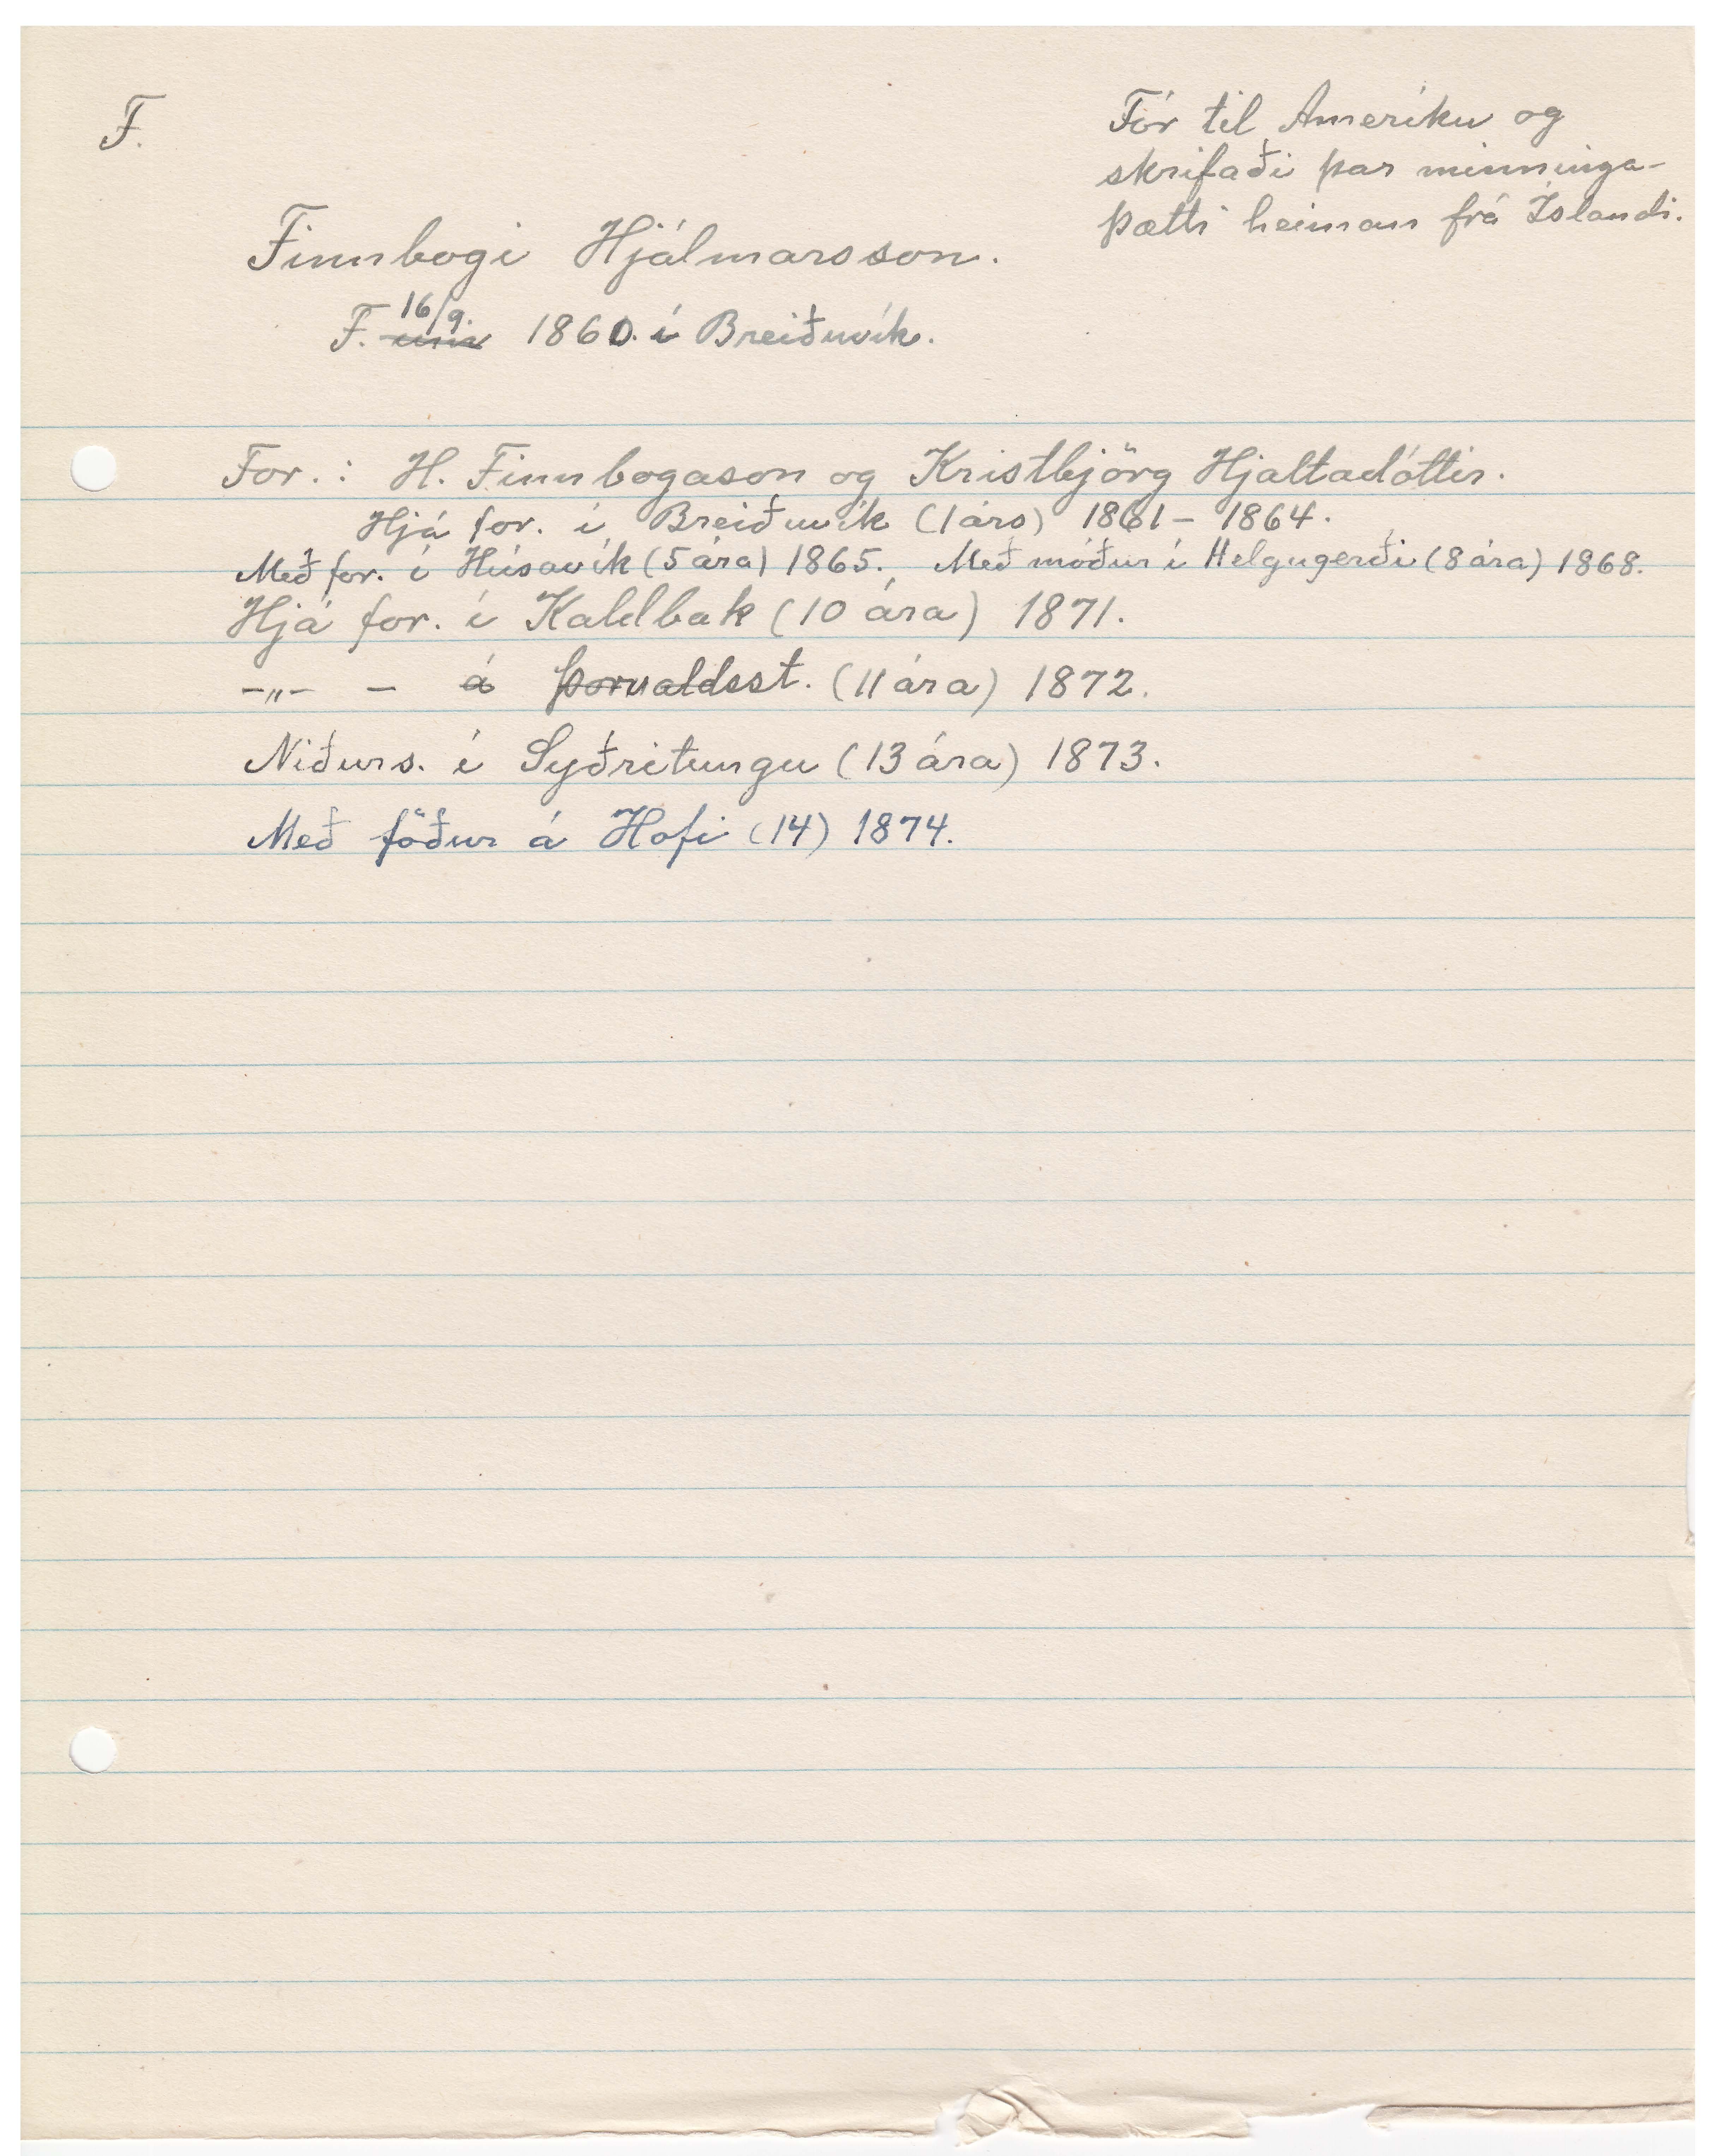 F.
Fór til Ameríku og
skrifaði þar minninga-
þætti heiman frá Íslandi.
Finnbogi Hjálmarsson.
16/9.
F. um 1860. í Breiðuvík.
For.: H. Finnbogason og Kristbjörg Hjaltadóttir.
Hjá for. í Breiðuvík (1 árs) 1861 - 1864.
Með for. í Húsavík (5 ára) 1865. Með móður í Helgugerði (8 ára) 1868.
Hjá for. í Kaldbak (10 ára) 1871.
-„- - á Þorvaldsst. (11 ára) 1872.
Niðurs. í Syðritungu (13 ára) 1873.
Með föður á Hofi (14) 1874.